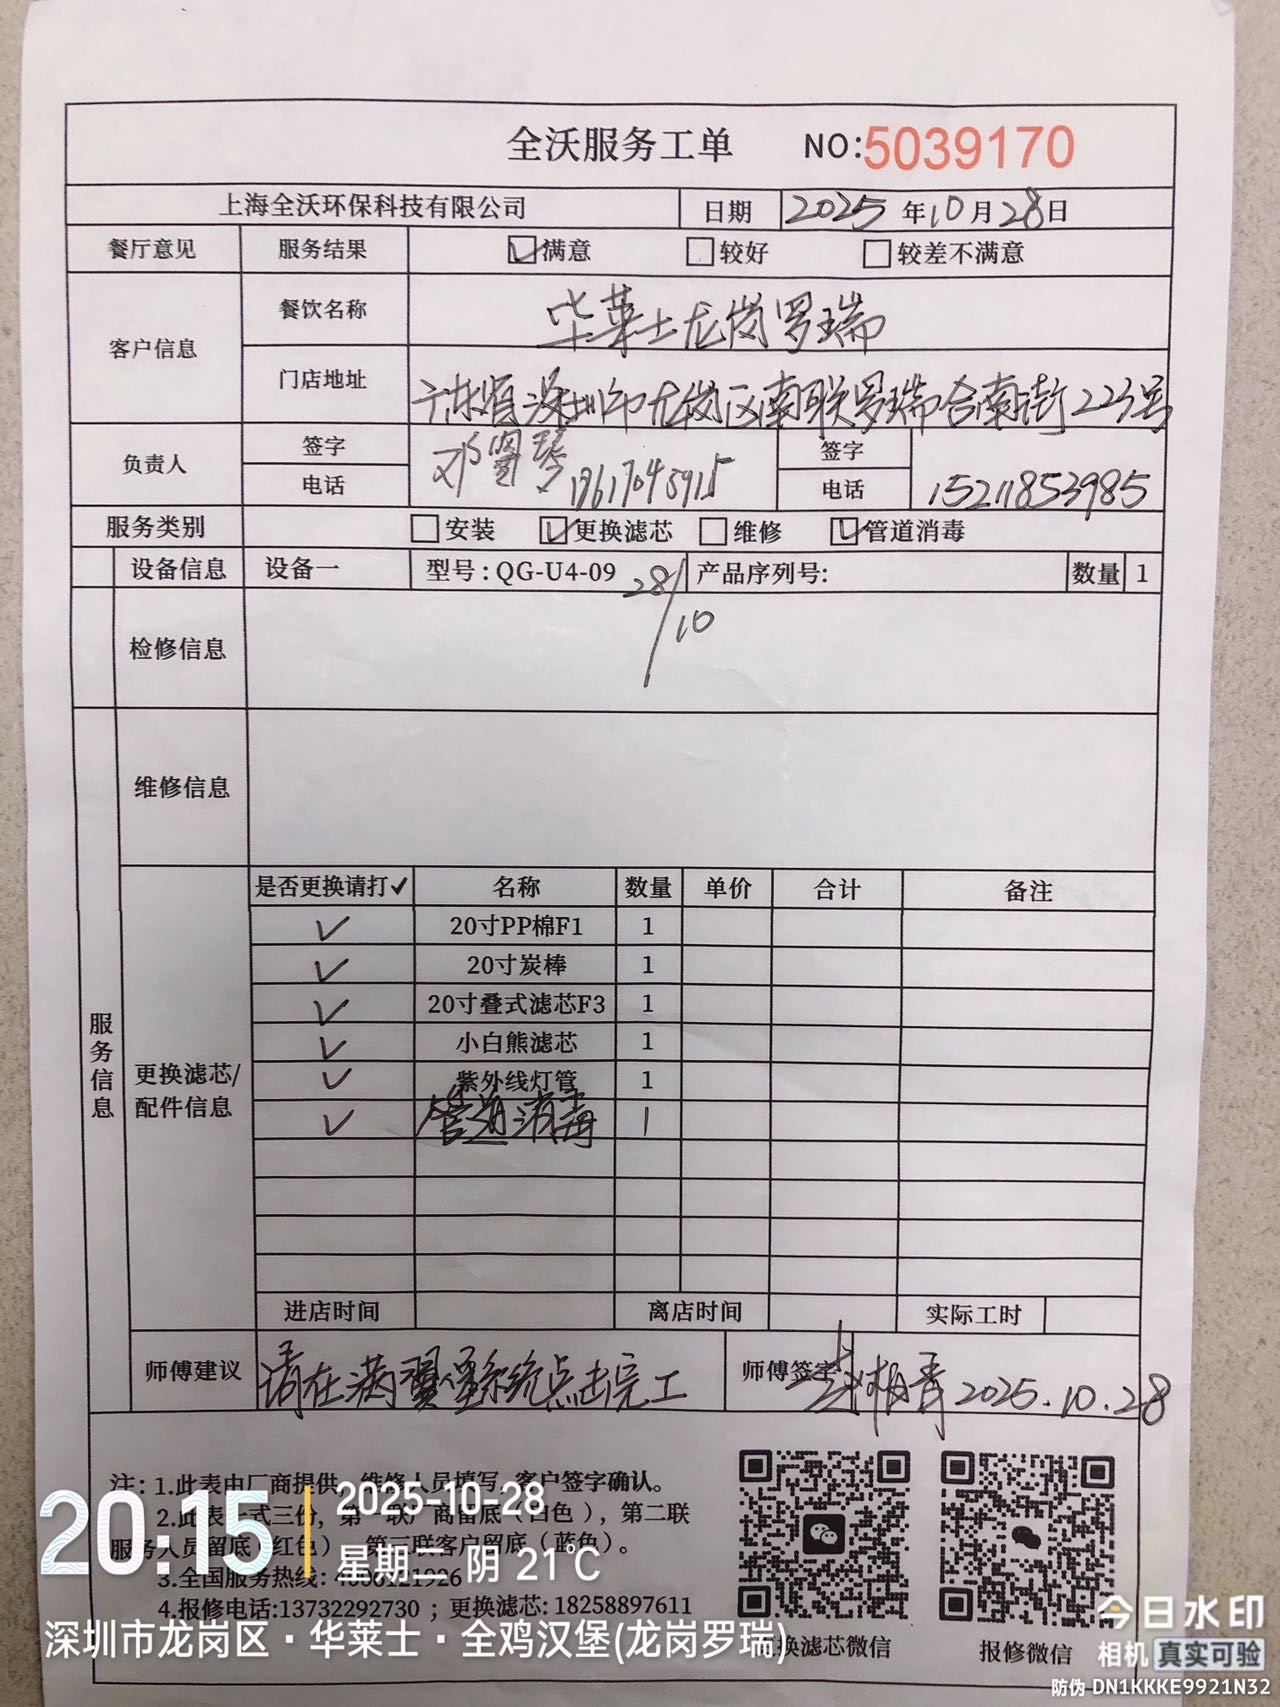 全沃服务工单 NO:5039170
上海全沃环保科技有限公司 日期 2025年10月28日
餐厅意见 服务结果 满意 较好 较差不满意
客户信息 餐饮名称 华莱士龙岗罗瑞
门店地址 广东省深圳市龙岗区南联罗瑞合南街223号
负责人 签字 邓 琴 签字
电话 13617045915 电话 15211853985
服务类别 安装 更换滤芯 维修 管道消毒
设备信息 设备一 型号:QG-U4-09 产品序列号: 数量 1
28/10
检修信息
维修信息
服务信息
更换滤芯/配件信息
是否更换请打✓ 名称 数量 单价 合计 备注
✓ 20寸PP棉F1 1
✓ 20寸炭棒 1
✓ 20寸叠式滤芯F3 1
✓ 小白熊滤芯 1
✓ 紫外线灯管 1
✓ 管道消毒 1
进店时间 离店时间 实际工时
师傅建议 请在满翼系统点击完工 师傅签字 2025.10.28
注: 1.此表由厂商提供, 维修人员填写, 客户签字确认。
2.此表一式三份, 第一联厂商留底(白色), 第二联
服务人员留底(红色) 第三联客户留底(蓝色)。
3.全国服务热线: 4008121926
4.报修电话:13732292730 ; 更换滤芯: 18258897611
更换滤芯微信 报修微信
20:15 2025-10-28
星期二 阴 21℃
深圳市龙岗区·华莱士·全鸡汉堡(龙岗罗瑞)
今日水印
相机 真实可验
防伪 DN1KKKE9921N32